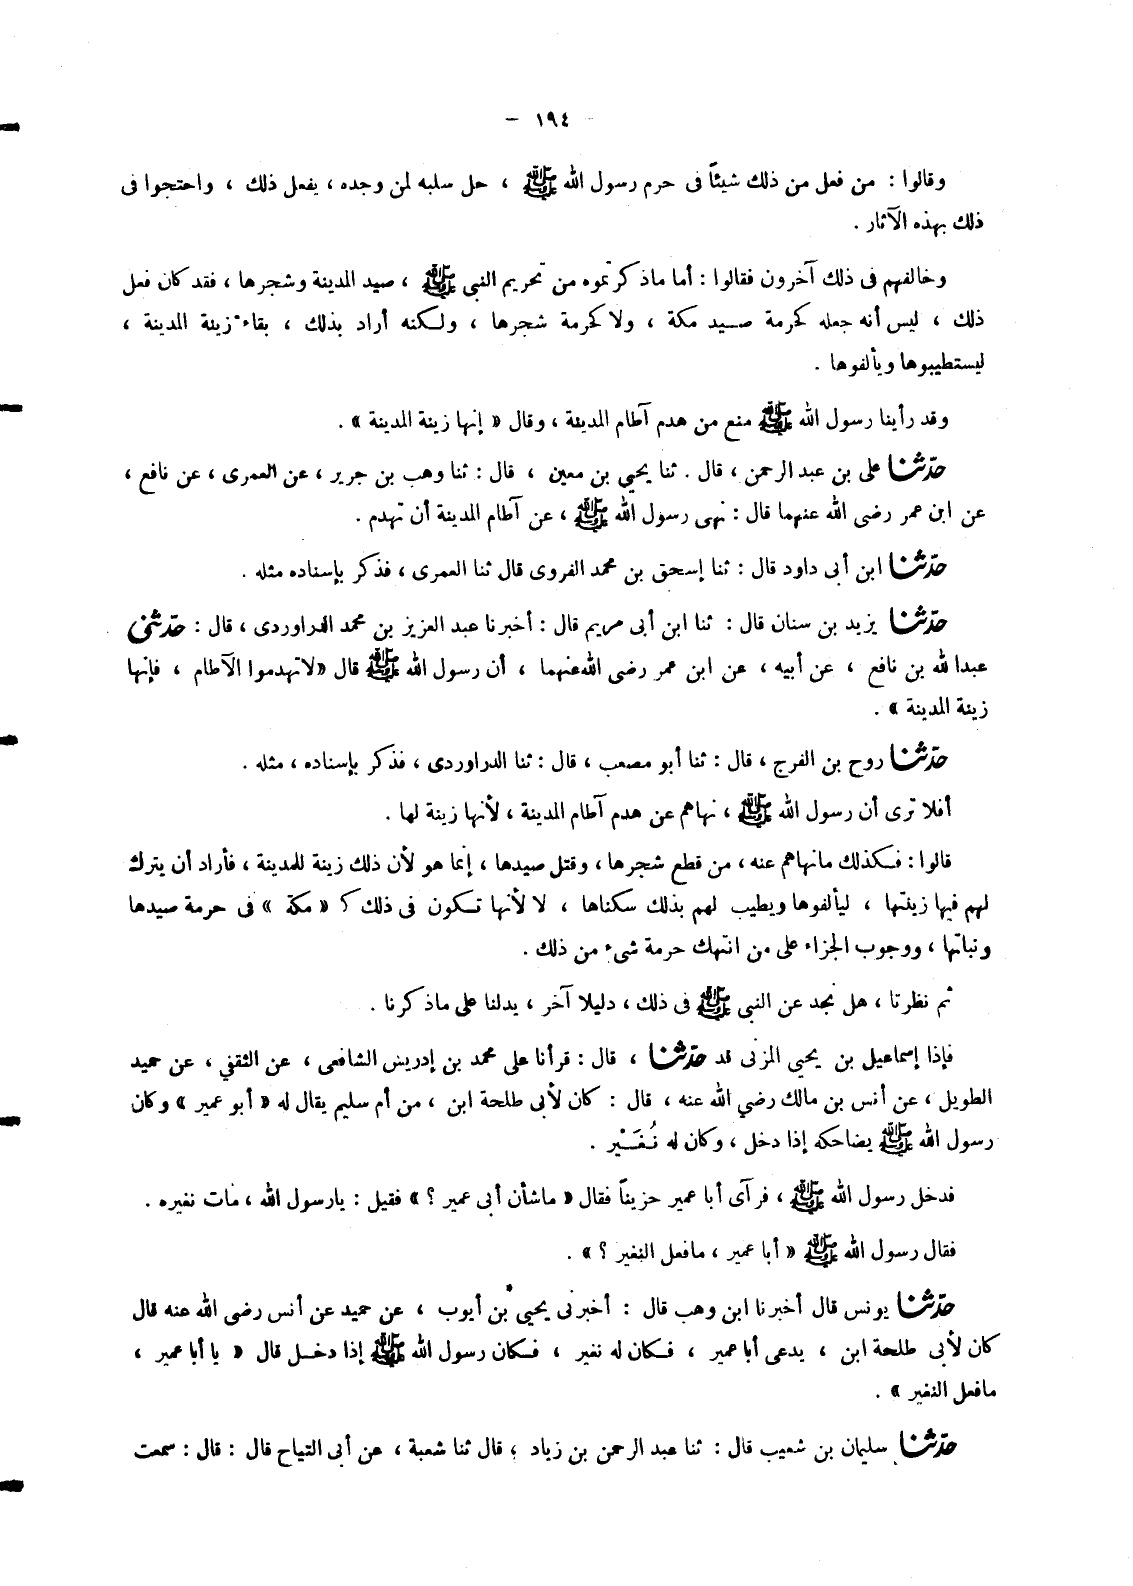 - ١٩٤ -
وقالوا : من فعل من ذلك شيئاً فى حرم رسول الله ﷺ ، حل سلبه لمن وجده ، يفعل ذلك ، واحتجوا فى
ذلك بهذه الآثار .
وخالفهم فى ذلك آخرون فقالوا : أما ماذكرتموه من تحريم النبى ﷺ ، صيد المدينة وشجرها ، فقد كان فعل
ذلك ، ليس أنه جعله كحرمة صيد مكة ، ولا كحرمة شجرها ، ولكنه أراد بذلك ، بقاء زينة المدينة ،
ليستطيبوها ويألفوها .
وقد رأينا رسول الله ﷺ منع من هدم آطام المدينة ، وقال « إنها زينة المدينة » .
حدّثنا على بن عبد الرحمن ، قال . ثنا يحيي بن معين ، قال : ثنا وهب بن جرير ، عن العمرى ، عن نافع ،
عن ابن عمر رضى الله عنهما قال : نهى رسول الله ﷺ ، عن آطام المدينة أن تهدم .
حدّثنا ابن أبى داود قال : ثنا إسحق بن محمد الفروى قال ثنا العمرى ، فذكر بإسناده مثله .
حدّثنا يزيد بن سنان قال : ثنا ابن أبى مريم قال : أخبرنا عبد العزيز بن محمد الدراوردى ، قال : حدّثنى
عبدالله بن نافع ، عن أبيه ، عن ابن عمر رضى الله عنهما ، أن رسول الله ﷺ قال «لاتهدموا الآطام ، فإنها
زينة المدينة » .
حدّثنا روح بن الفرج ، قال : ثنا أبو مصعب ، قال : ثنا الدراوردى ، فذكر بإسناده ، مثله .
أفلا ترى أن رسول الله ﷺ ، نهاهم عن هدم آطام المدينة ، لأنها زينة لها .
قالوا : فكذلك مانهاهم عنه ، من قطع شجرها ، وقتل صيدها ، إنما هو لأن ذلك زينة للمدينة ، فأراد أن يترك
لهم فيها زينتها ، ليألفوها ويطيب لهم بذلك سكناها ، لا لأنها تكون فى ذلك ك « مكة » فى حرمة صيدها
ونباتها ، ووجوب الجزاء على من انتهك حرمة شىء من ذلك .
ثم نظرنا ، هل نجد عن النبى ﷺ فى ذلك ، دليلا آخر ، يدلنا على ماذكرنا .
فإذا إسماعيل بن يحيي المزنى قد حدّثنا ، قال : قرأنا على محمد بن إدريس الشافعى ، عن الثقفي ، عن حميد
الطويل ، عن أنس بن مالك رضي الله عنه ، قال : كان لأبى طلحة ابن ، من أم سليم يقال له « أبو عمير » وكان
رسول الله ﷺ يضاحكه إذا دخل ، وكان له نُغَيْر .
فدخل رسول الله ﷺ ، فرآى أبا عمير حزيناً فقال « ماشأن أبى عمير ؟ » فقيل : يارسول الله ، مات نغيره .
فقال رسول الله ﷺ « أبا عمير ، مافعل النغير ؟ » .
حدّثنا يونس قال أخبرنا ابن وهب قال : أخبرنى يحيي بن أيوب ، عن حميد عن أنس رضى الله عنه قال
كان لأبى طلحة ابن ، يدعى أبا عمير ، فكان له نغير ، فكان رسول الله ﷺ إذا دخل قال « يا أبا عمير ،
مافعل النغير » .
حدّثنا سليمان بن شعيب قال : ثنا عبد الرحمن بن زياد ، قال ثنا شعبة ، عن أبى التياح قال : قال : سمعت